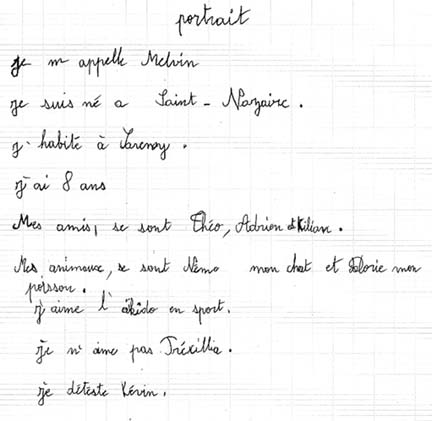 portrait
je m appelle Melvin
je suis né a Saint - Nazaire .
j' habite à Savenay .
j'ai 8 ans
Mes amis, se sont Théo, Adrien et Kilian .
Mes animaux, se sont Némo mon chat et Dolorie mon
poisson .
j'aime l' aïkido en sport.
je n' aime pas Tréxillia .
je déteste Kévin .